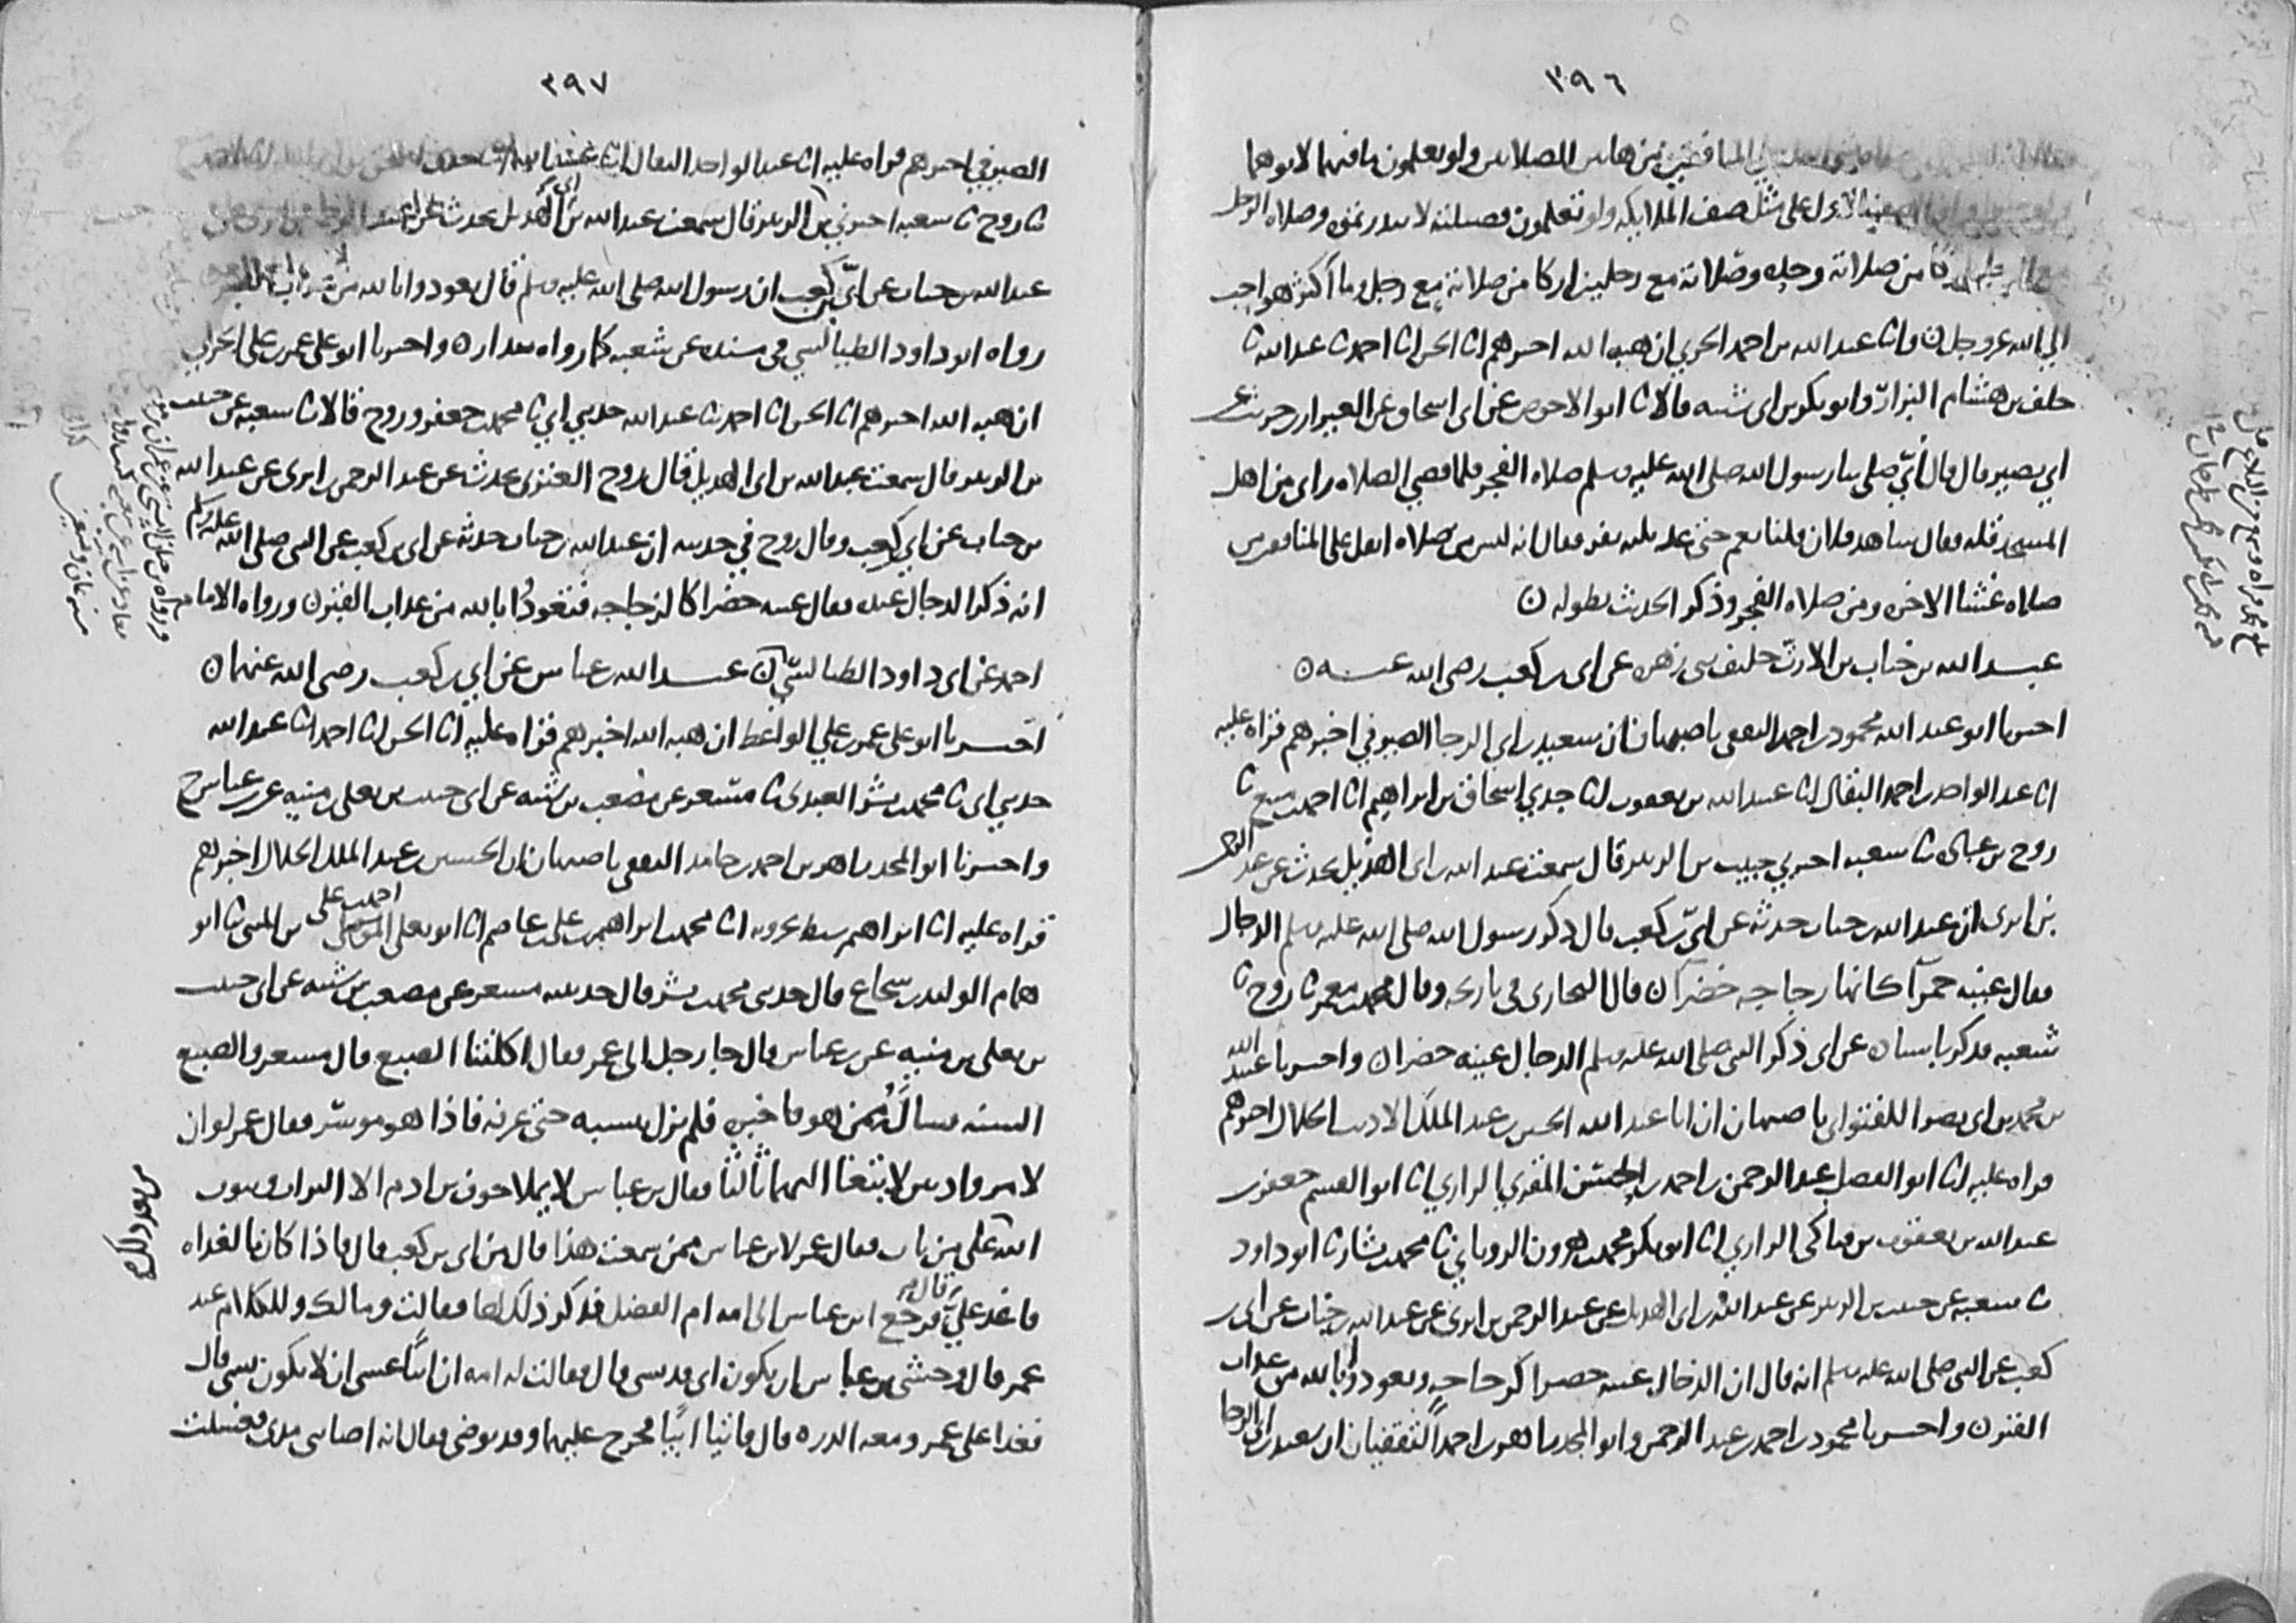 ٣٩٦
المنافقين من هاتين الصلاتين ولو يعلمون ما فيهما لاتوهما
الاول على مثل صف الملايكه ولو تعلمون فضيلته لابتدرتموه وصلاه الرجل
من صلاته وحده وصلاته مع رجلين ازكا من صلاته مع رجل وما اكثر هو احب
الي الله عز وجل ن وانا عبد الله بن احمد الحربي ان هبه الله اخبرهم انا الحسن انا احمد نا عبد الله نا
خلف بن هشام البزار وابو بكر بن ابي شيبه قالا نا ابو الاحوص عن ابي اسحاق عن العيزار بن حريث عن
ابي بصير قال قال أبيّ صلى بنا رسول الله صلى الله عليه وسلم صلاه الفجر فلما قضي الصلاه راى من اهل
المسجد قله فقال شاهد فلان قلنا نعم حتى عد ثلثه نفر فقال انه ليس من صلاه اثقل على المنافقين من
صلاه عشا الاخره ومن صلاه الفجر وذكر الحديث بطوله ن
عبد الله بن خباب بن الارتّ حليف بني زهره عن ابي بن كعب رضي الله عنه ن
اخبرنا ابو عبد الله محمود بن احمد الثقفي باصبهان ان سعيد بن ابي الرجا الصيرفي اخبرهم قراه عليه
انا عبد الواحد بن احمد البقال انا عبيد الله بن يعقوب انا جدي اسحاق بن ابراهيم انا احمد بن منيع نا
روح بن عباده نا شعبه اخبرني حبيب بن الزبير قال سمعت عبد الله بن ابي الهذيل يحدث عن عبد الرحمن
بن ابزى ان عبد الله بن خباب حدثه عن ابيّ بن كعب قال ذكر رسول الله صلى الله عليه وسلم الدجال
فقال عينه خضرآ كانها زجاجه خضرآ ن قال البخاري في تاريخه وقال محمد بن معمر نا روح نا
شعبه فذكر باسناده عن ابي ذكر النبي صلى الله عليه وسلم الدجال عينه خضرا ن واخبرنا عبد الله
بن محمد بن ابي نصر اللفتواني باصبهان ان ابا عبد الله الحسين بن عبد الملك الاديب الخلال اخبرهم
قراه عليه انا ابو الفضل عبد الرحمن بن احمد بن الحسن المقري الرازي انا ابو القسم جعفر بن
عبد الله بن يعقوب بن فناكي الرازي انا ابو بكر محمد بن هرون الروياني نا محمد بن بشار نا ابو داود
نا شعبه عن حبيب بن الزبير عن عبد الله بن ابي الهذيل عن عبد الرحمن بن ابزى عن عبد الله بن خباب عن ابي بن
كعب عن النبي صلى الله عليه وسلم انه قال ان الدجال عينه خضرا كزجاجه وتعوذوا بالله من عذاب
القبر ن واخبرنا محمود بن احمد بن عبد الرحمن وابو المجد زاهر بن احمد الثقفيان ان سعيد بن ابي الرجا
٣٩٧
الصيرفي اخبرهم قراه عليه انا عبد الواحد البقال انا عبيد الله انا جدي
نا روح نا شعبه اخبرني بن الزبير قال سمعت عبد الله بن ابي الهذيل يحدث عن عبد
عبد الله بن خباب عن ابيّ بن كعب ان رسول الله صلى الله عليه وسلم قال تعوذوا بالله من عذاب القبر
رواه ابو داود الطيالسي في مسنده عن شعبه كما رواه بندار ن واخبرنا ابو علي عمر بن علي الحربي
ان هبه الله اخبرهم انا الحسن انا احمد نا عبد الله حدثني ابي نا محمد بن جعفر وروح قالا نا شعبه عن حبيب
بن الزبير قال سمعت عبد الله بن ابي الهذيل قال روح العنزي يحدث عن عبد الرحمن بن ابزى عن عبد الله
بن خباب عن ابي بن كعب وقال روح في حديثه ان عبد الله بن خباب حدثه عن ابي بن كعب عن النبي صلى الله عليه وسلم
انه ذكر الدجال عنده فقال عينه خضرا كالزجاجه فتعوذُا بالله من عذاب القبر ن ورواه الامام
احمد عن ابي داود الطيالسي ن عبد الله بن عباس عن ابي بن كعب رضي الله عنهما ن
اخبرنا ابو علي عمر بن علي الواعظ ان هبه الله اخبرهم قراه عليه انا الحسن انا احمد نا عبد الله
حدثني ابي نا محمد بن بشر العبدي نا مسعر عن مصعب بن شيبه عن ابي حبيب بن يعلى بن منيه عن بن عباس ح
واخبرنا ابو المجد زاهر بن احمد بن حامد الثقفي باصبهان ان الحسين بن عبد الملك الخلال اخبرهم
قراه عليه انا ابراهيم سبط بحرويه انا محمد بن ابراهيم بن علي بن عاصم انا ابو يعلى الموصلي احمد بن علي بن المثنى نا ابو
همام الوليد بن شجاع قال حدثني محمد بن بشر قال حدثنيه مسعر عن مصعب بن شيبه عن ابي حبيب
بن يعلى بن منيه عن بن عباس قال جا رجل الى عمر فقال اكلتنا الضبع قال مسعر والضبع
السنه فسالَهُ ممن هو فاخبره فلم يزل ينسبه حتى عرفه فاذا هو موسر فقال عمر لو ان
لامرء واديين لابتغا اليهما ثالثا فقال بن عباس لا يملا جوف بن ادم الا التراب ويتوب
الله على من تاب فقال عمر لابن عباس ممن سمعت هذا قال من ابي بن كعب قال فاذا كان بالغداه
فاغد عليّ قال فرجع ابن عباس الى امه ام الفضل فذكر ذلك لها فقالت ومالك وللكلام عند
عمر قال وخشي بن عباس ان يكون ابي قد نسي قال فقالت له امه ان ابيًّا عسى ان لا يكون نسي قال
فغدا على عمر ومعه الدره قال فاتيا ابيًّا فخرج عليهما وقد توضى فقال انه اصابني مذى فغسلت
من بعد ذلك